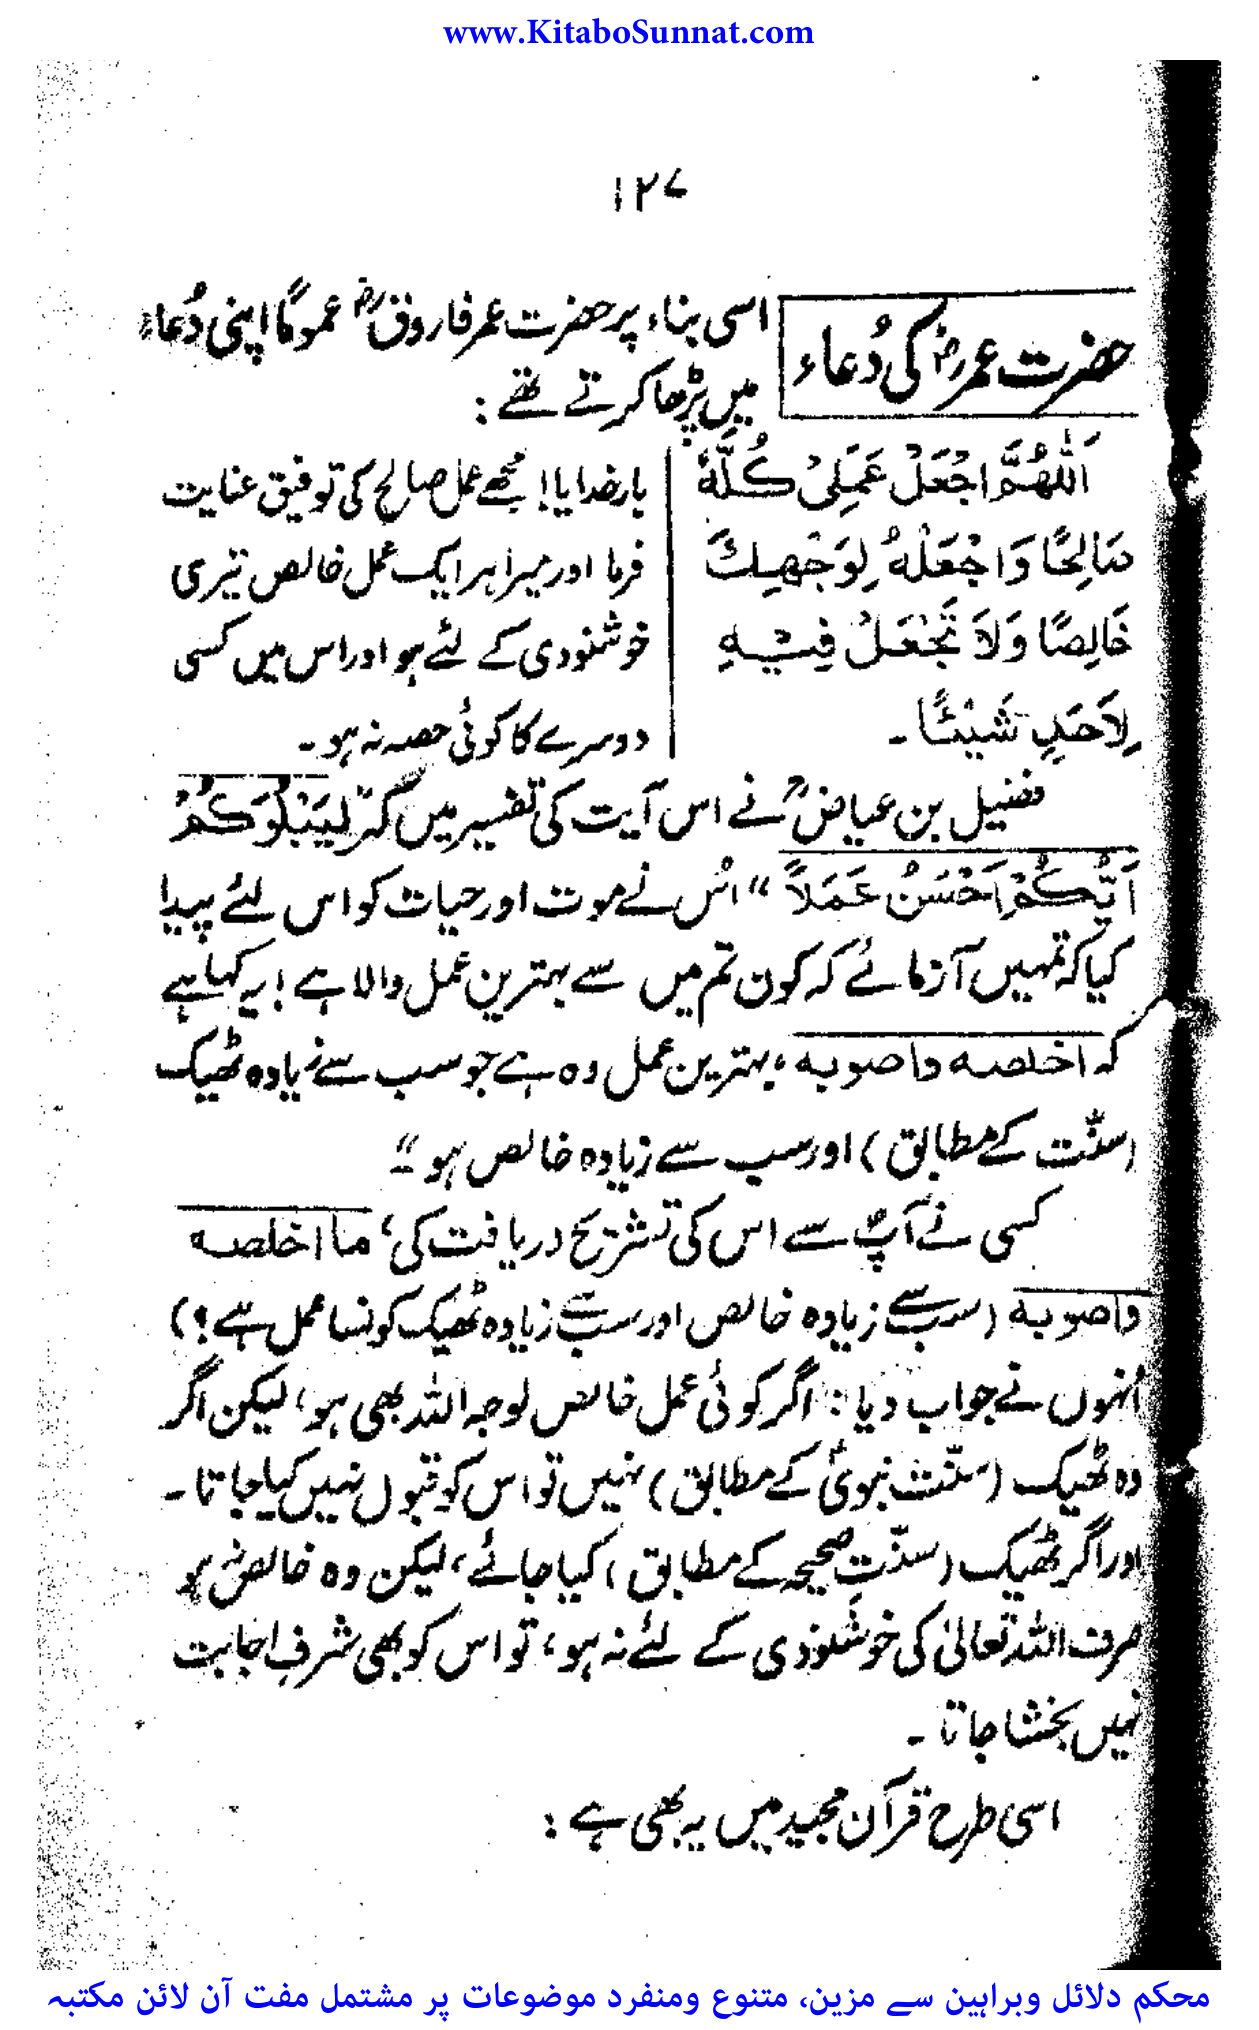 www.KitaboSunnat.com
۱۲۷
حضرت عمرؓ کی دُعاء
اسی بناء پر حضرت عمر فاروقؓ عموماً اپنی دُعاء
میں پڑھا کرتے تھے :
اَللّٰهُمَّ اجْعَلْ عَمَلِیْ کُلَّهٗ
صَالِحًا وَاجْعَلْهُ لِوَجْهِكَ
خَالِصًا وَلَا تَجْعَلْ فِيْهِ
لِاَحَدٍ شَيْئًا ۔
بارخدایا! مجھے عمل صالح کی توفیق عنایت
فرما اور میرا ہر ایک عمل خالص تیری
خوشنودی کے لئے ہو اور اس میں کسی
دوسرے کا کوئی حصہ نہ ہو ۔
فضیل بن عیاضؒ نے اس آیت کی تفسیر میں کہ لِيَبْلُوَكُمْ
اَيُّكُمْ اَحْسَنُ عَمَلًا “ اُس نے موت اور حیات کو اس لئے پیدا
کیا کہ تمہیں آزمائے کہ کون تم میں سے بہترین عمل والا ہے! یہ کہا ہے
کہ اخلصه واصوبه ، بہترین عمل وہ ہے جو سب سے زیادہ ٹھیک
(سنّت کے مطابق) اور سب سے زیادہ خالص ہو “
کسی نے آپؒ سے اس کی تشریح دریافت کی، ما اخلصه
واصوبه (سب سے زیادہ خالص اور سب سے زیادہ ٹھیک کونسا عمل ہے؟)
اُنہوں نے جواب دیا : اگر کوئی عمل خالص لوجہ اللہ بھی ہو، لیکن اگر
وہ ٹھیک (سنّت نبویؐ کے مطابق) نہیں تو اس کو قبول نہیں کیا جاتا ۔
اور اگر ٹھیک (سنّتِ صحیحہ کے مطابق) کیا جائے، لیکن وہ خالص نہ ہو
صرف اللہ تعالیٰ کی خوشنودی کے لئے نہ ہو، تو اس کو بھی شرفِ اجابت
نہیں بخشا جاتا ۔
اسی طرح قرآن مجید میں یہ بھی ہے :
محکم دلائل وبراہین سے مزین، متنوع ومنفرد موضوعات پر مشتمل مفت آن لائن مکتبہ